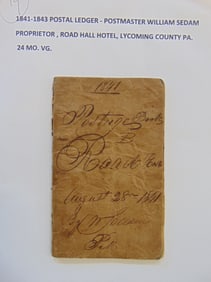 1841-1843 POSTAL LEDGER - POSTMASTER WILLIAM SEDAM
PROPRIETOR , ROAD HALL HOTEL, LYCOMING COUNTY PA.
24 MO. VG.
1841
Postage Book
B
Road
August 28th 1841